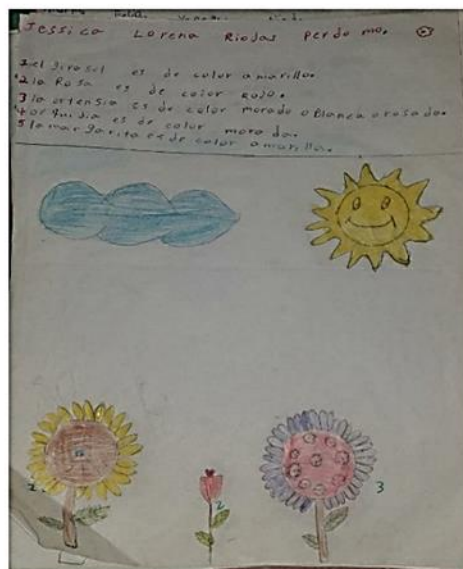 Jessica Lorena Riojas perdomo.
1 el girasol es de color amarillo.
2 la Rosa es de color Rojo.
3 la ortensia es de color morado o Blanca o rosado.
4 orquidia es de color morado.
5 la margarita es de color amarillo.
1.
2
3